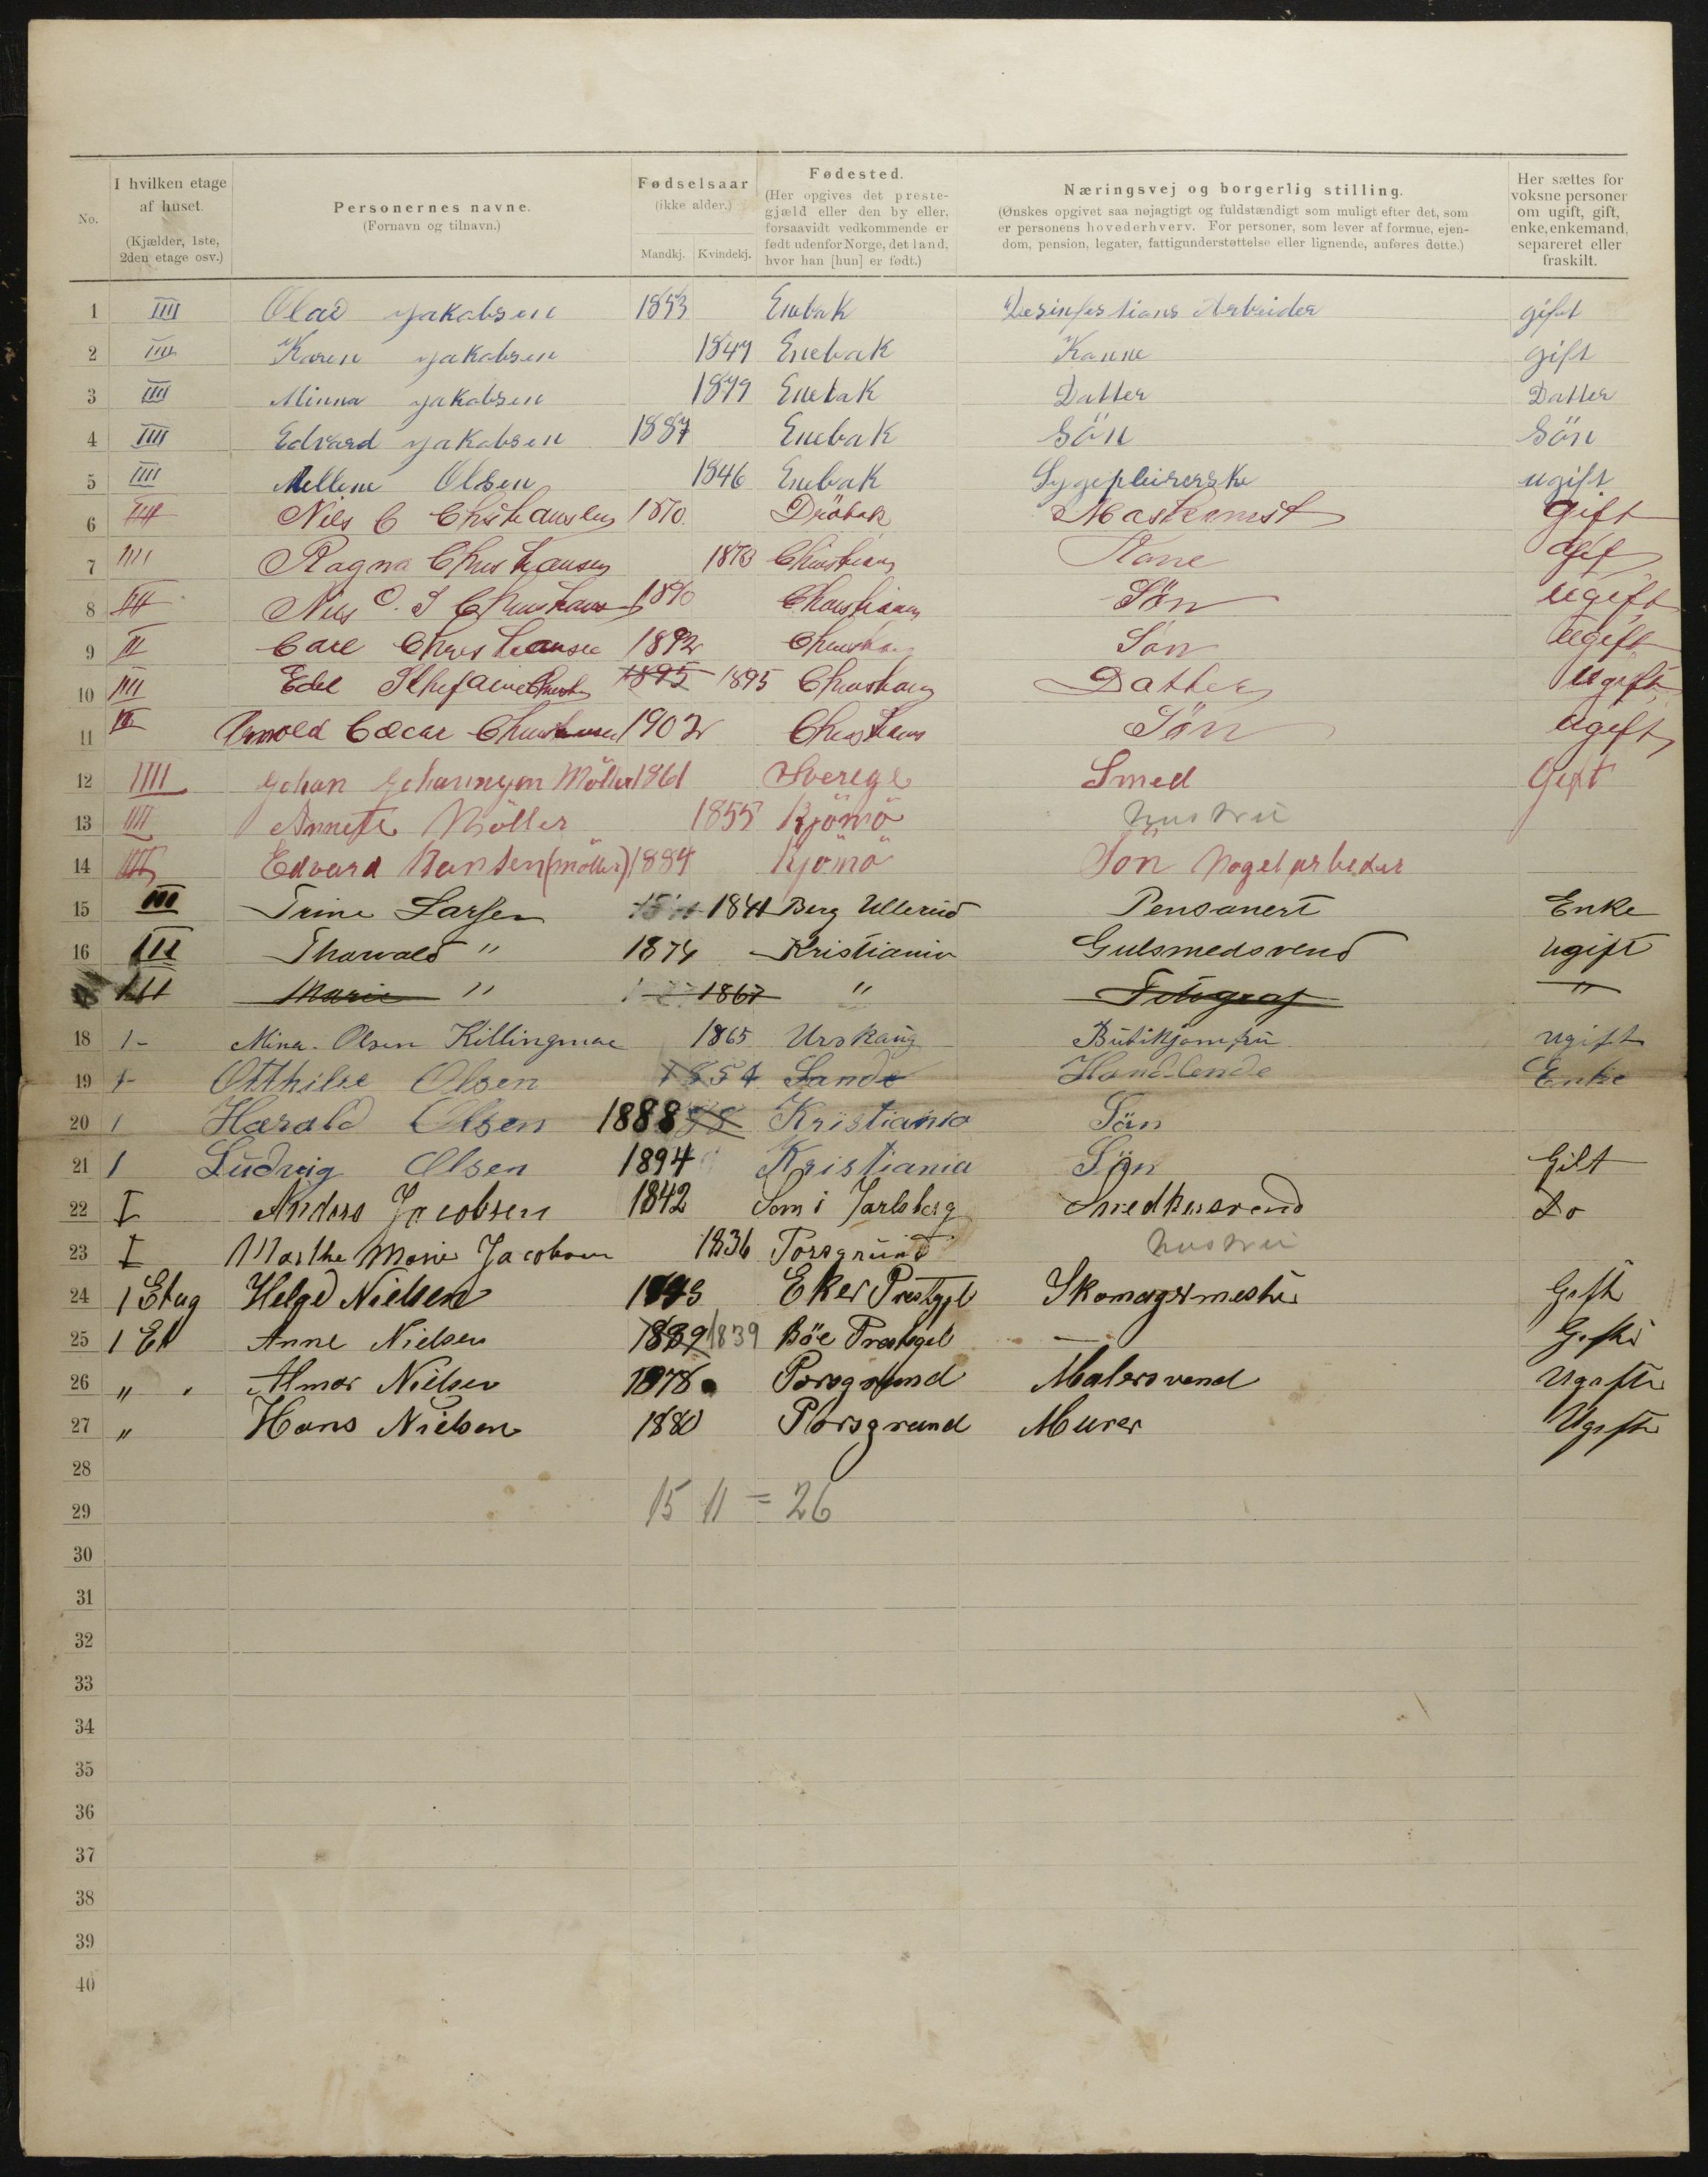 No.
I hvilken etage af huset. (Kjælder, 1ste, 2den etage osv.)
Personernes navne. (Fornavn og tilnavn.)
Fødselsaar (ikke alder.) Mandkj. Kvindekj.
Fødested. (Her opgives det prestegjæld eller den by eller, forsaavidt vedkommende er født udenfor Norge, det land, hvor han [hun] er født.)
Næringsvej og borgerlig stilling. (Ønskes opgivet saa nøjagtigt og fuldstændigt som muligt efter det, som er personens hovederhverv. For personer, som lever af formue, ejendom, pension, legater, fattigunderstøttelse eller lignende, anføres dette.)
Her sættes for voksne personer om ugift, gift, enke, enkemand, separeret eller fraskilt.
1 IIII Olad Jakabsen 1853 Enebak Desinfestions Arbeider gift
2 IIII Karen Jakabsen 1847 Enebak Kanne gift
3 IIII Minna Jakabsen 1879 Enebak Datter Datter
4 IIII Edvard Jakabsen 1887 Enebak Sön Sön
5 IIII Mellene Olsen 1846 Enebak Sygepleirerske ugift
6 IIII Nils C Christiansen 1870 Dröbak Maskenist gift
7 IIII Ragna Christiansen 1870 Christiania Kone gift
8 IIII Nils O. S Christiansen 1890 Christiania Sön ugift
9 III Carl Christiansen 1892 Christiania Sön ugift
10 IIII Edel 1895 1895 Christiania Datter ugift
11 III Arnold Oscar Christiansen 1902 Christiania Sön ugift
12 IIII Johan Johannesen Möller 1861 Sverege Smed Gift
13 IIII Annette Möller 1855 Kjömö hustru
14 IIII Edvard Hansen (Möller) 1884 Kjömö Sön Nagelarbeder
15 III Trine Larsen 1841 Berg Ullerud Pensonert Enke
16 III Thorvald " 1874 Kristiania Gulsmedsvend ugift
III Marie " 1867 " Fotograf "
18 1- Mina Olsen Killingmoe 1865 Urskaug Butikjomfru ugift
19 1- Otthilse Olsen 1854 Sande Handlende Enke
20 1 Harald Olsen 1888 Kristiania Sön
21 1 Ludvig Olsen 1894 Kristiania Sön Gift
22 I Anders Jacobsen 1842 Sem i Jarlsberg Snedkersvend Do
23 I Marthe Marie Jacobsen 1836 Porsgrund hustru
24 1 Etag Helge Nielsen 1843 Eker Prestgjl Skomagermester Gift
25 1 Et Anne Nielsen 1839 1839 Böe Prestegel — Gift
26 " Almar Nielsen 1878 Porsgrund Malersvend Ugift
27 " Hans Nielsen 1880 Porsgrund Murer Ugift
28
29 15 11 = 26
30
31
32
33
34
35
36
37
38
39
40